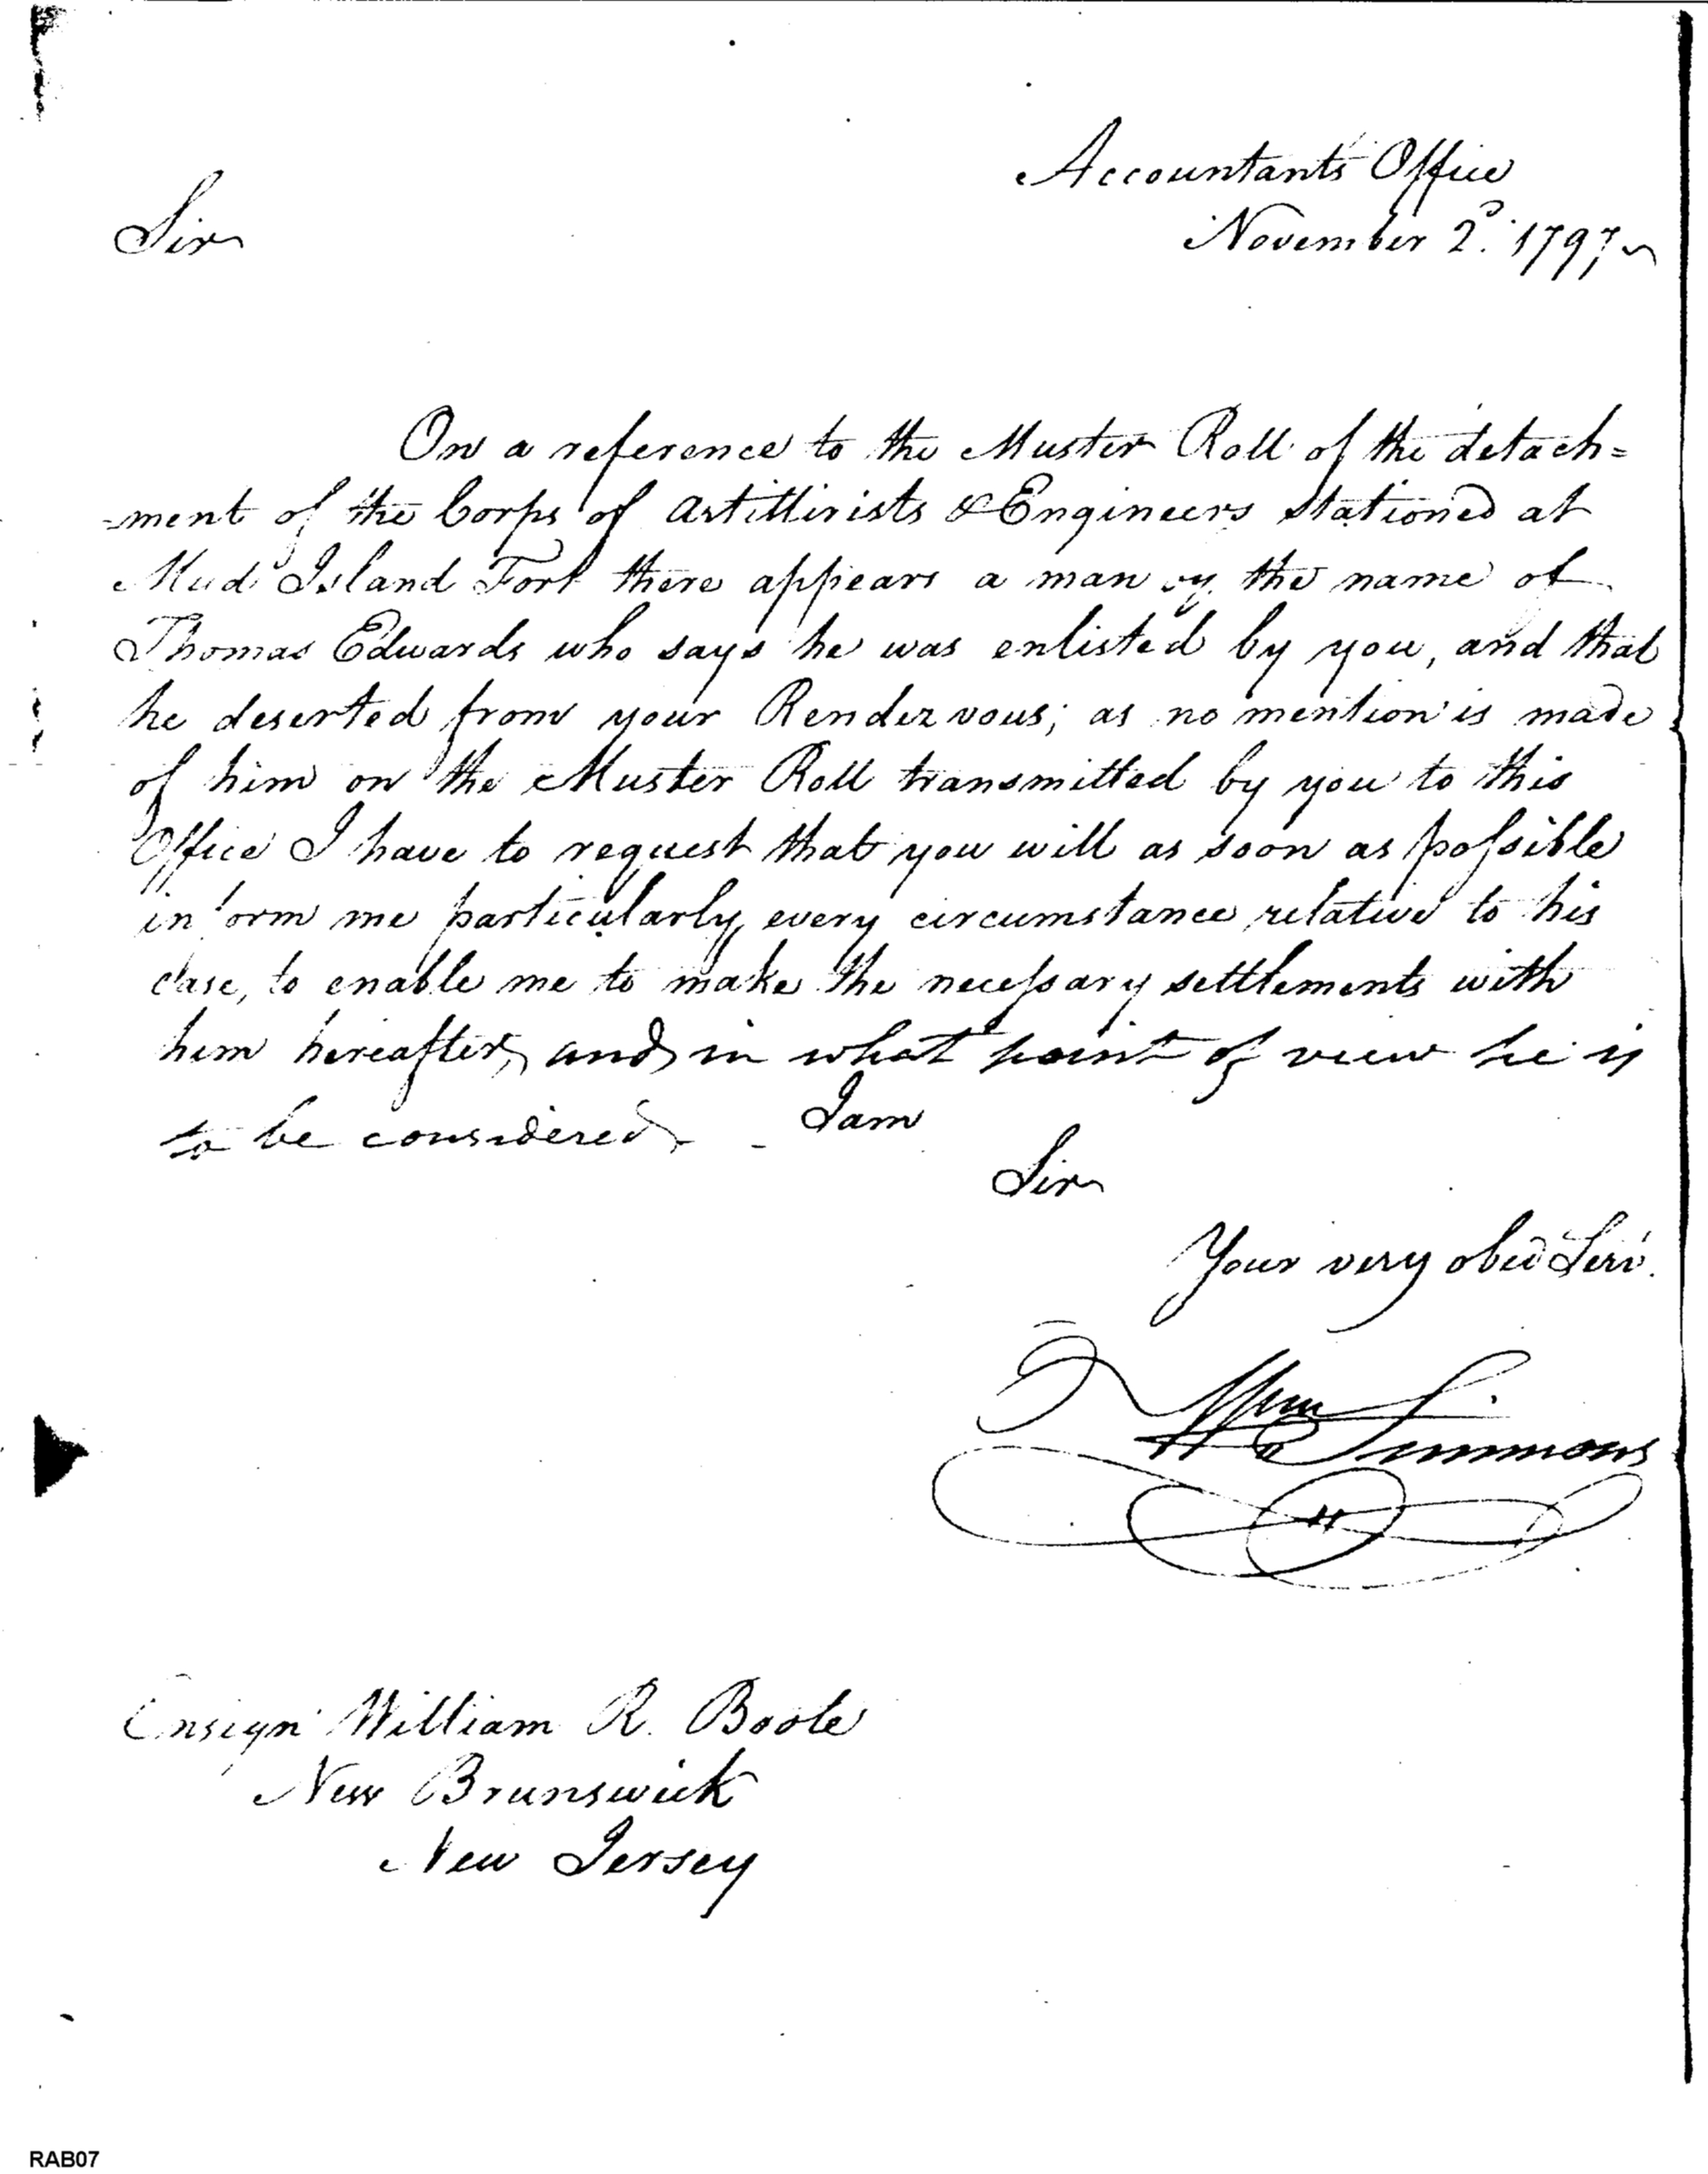 Accountants Office
November 2d. 1797
Sir
On a reference to the Muster Roll of the detach=
-ment of the Corps of Artillirists & Engineers stationed at
Mud Island Fort there appears a man by the name of
Thomas Edwards who says he was enlisted by you, and that
he deserted from your Rendezvous; as no mention is made
of him on the Muster Roll transmitted by you to this
Office I have to request that you will as soon as possible
inform me particularly every circumstance relative to his
case, to enable me to make the necessary settlements with
him hereafter, and in what point of view he is
to be considered - I am
Sir
Your very obed Serv.
Wm Simmons
Ensign William R. Boote
New Brunswick
New Jersey
RAB07